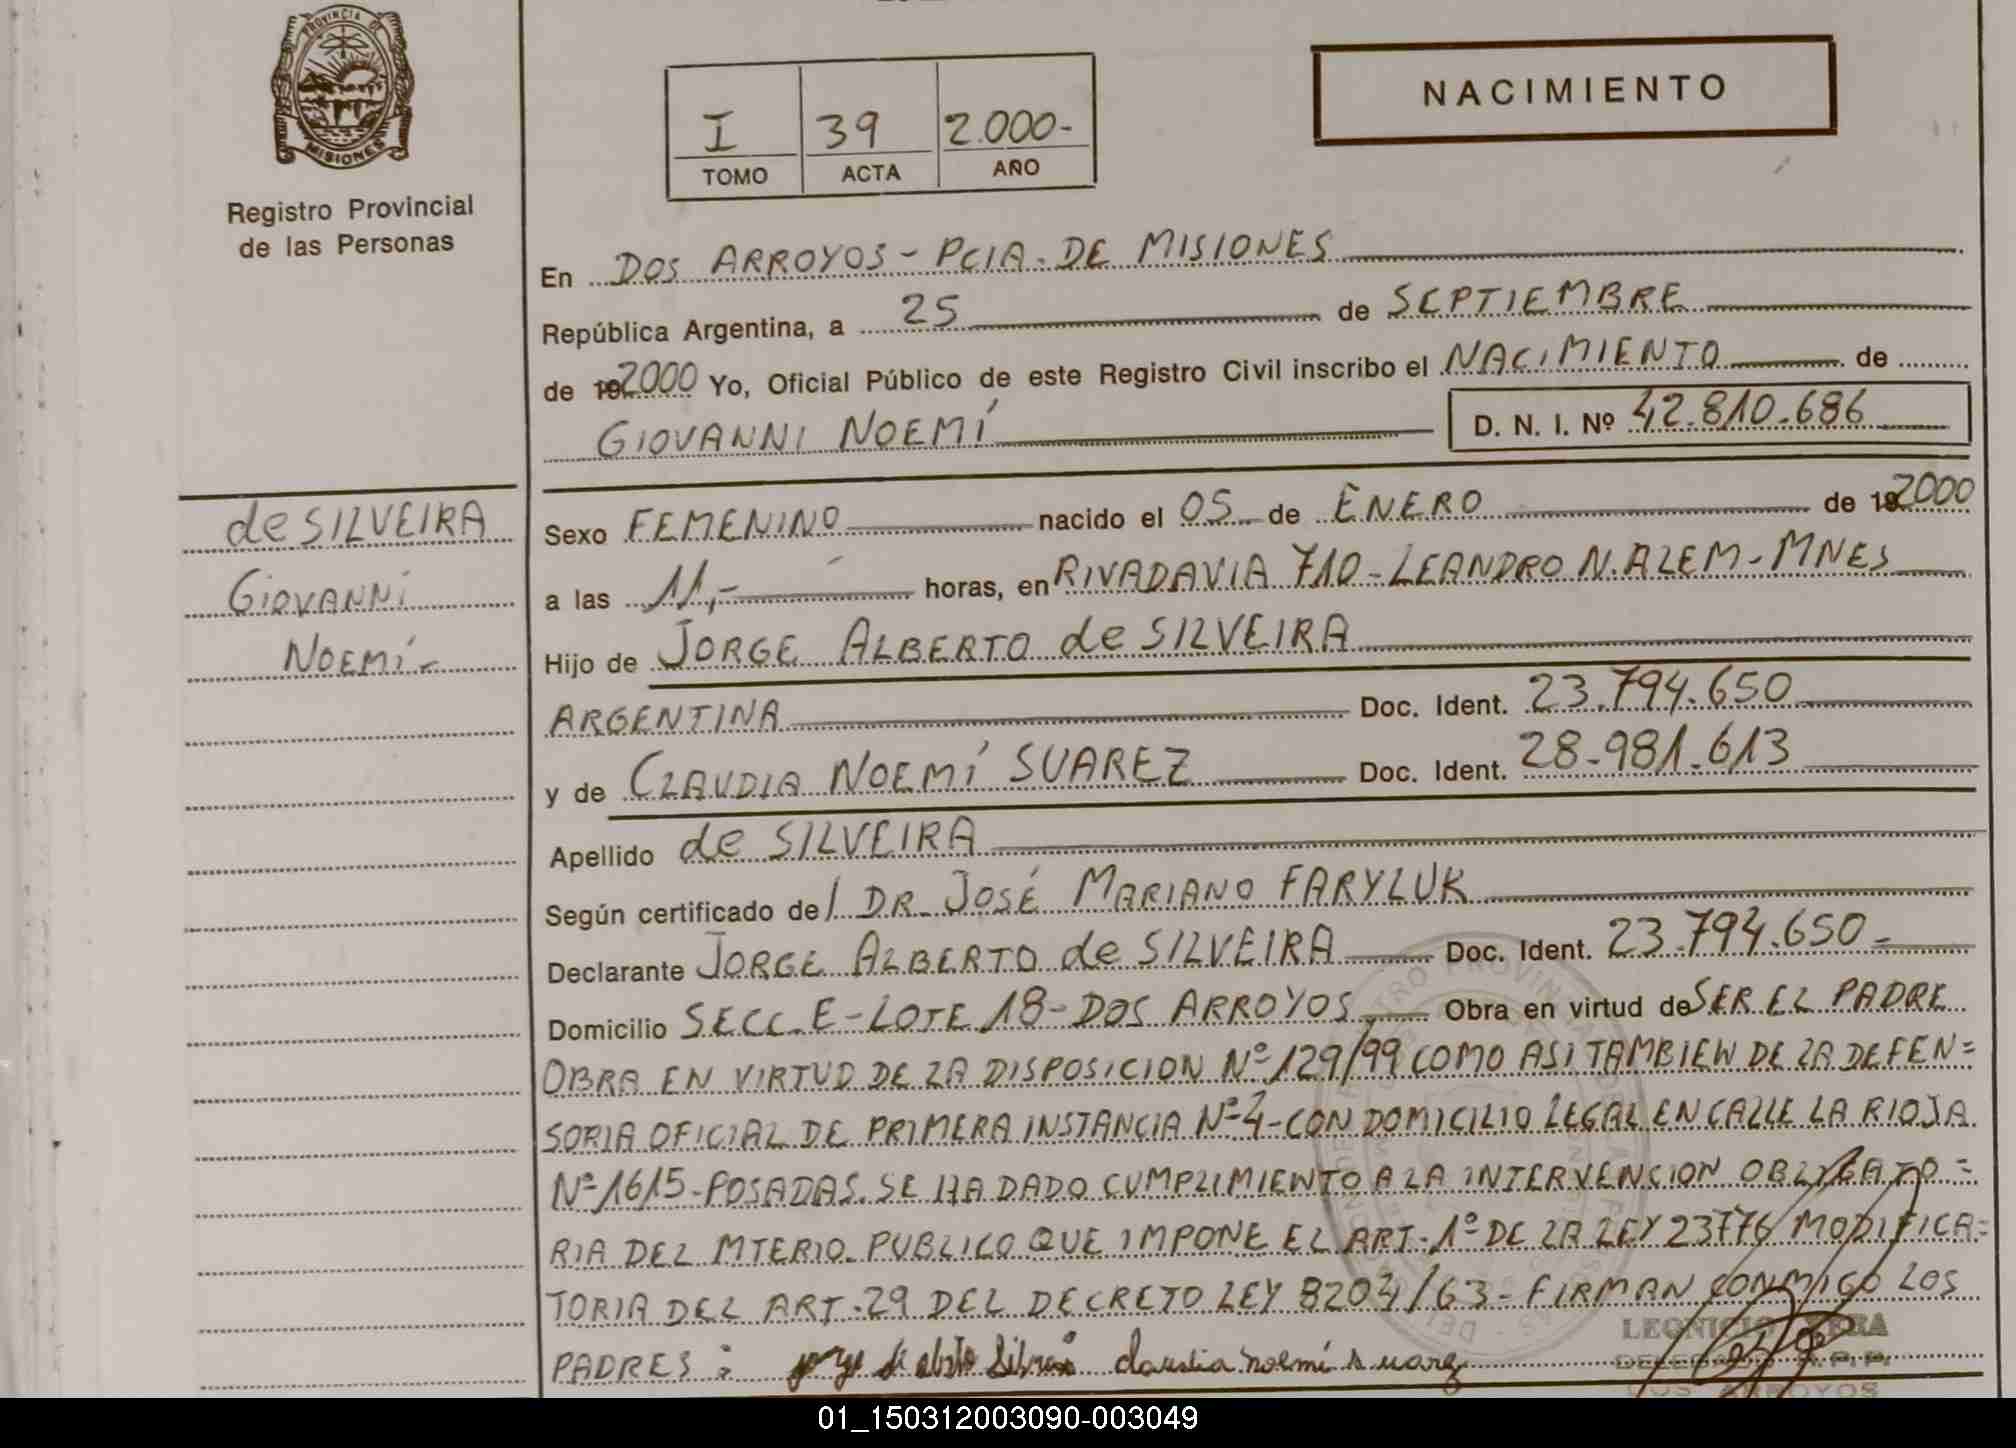 PROVINCIA DE
MISIONES
Registro Provincial
de las Personas
I 39 2.000-
TOMO ACTA AÑO
NACIMIENTO
En DOS ARROYOS - PCIA. DE MISIONES
República Argentina, a 25 de SEPTIEMBRE
de 192000 Yo, Oficial Público de este Registro Civil inscribo el NACIMIENTO de
GIOVANNI NOEMÍ D. N. I. Nº 42.810.686
de SILVEIRA
GIOVANNI
NOEMÍ-
Sexo FEMENINO nacido el 05 de ENERO de 192000
a las 11,- horas, en RIVADAVIA 710-LEANDRO N. ALEM-MNES
Hijo de JORGE ALBERTO de SILVEIRA
ARGENTINA Doc. Ident. 23.794.650
y de CLAUDIA NOEMÍ SUAREZ Doc. Ident. 28-981.613
Apellido de SILVEIRA
Según certificado del DR. JOSÉ MARIANO FARYLUK
Declarante JORGE ALBERTO de SILVEIRA Doc. Ident. 23.794.650-
Domicilio SECC. E-LOTE 18-DOS ARROYOS Obra en virtud de SER EL PADRE
OBRA EN VIRTUD DE LA DISPOSICION Nº 129/99 COMO ASI TAMBIEN DE LA DEFEN=
SORIA OFICIAL DE PRIMERA INSTANCIA Nº 4-CON DOMICILIO LEGAL EN CALLE LA RIOJA
Nº 1615-POSADAS. SE HA DADO CUMPLIMIENTO A LA INTERVENCION OBLIGATO=
RIA DEL MTERIO. PUBLICO QUE IMPONE EL ART. 1º DE LA LEY 23776 MODIFICA=
TORIA DEL ART. 29 DEL DECRETO LEY 8204/63- FIRMAN CONMIGO LOS
PADRES: claudia noemí suarez
LEONICIO VERA
DELEGADO R.P.P.
DOS ARROYOS
01_150312003090-003049